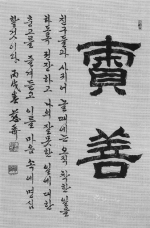 責善
친구들과 사귀어 놀 때에는 오직 착한 일을
하도록 권장하고 나의 잘못한 일에 대한
충고를 즐겁게 듣고 이를 마음 속에 명심
할 것이라 丙戌春